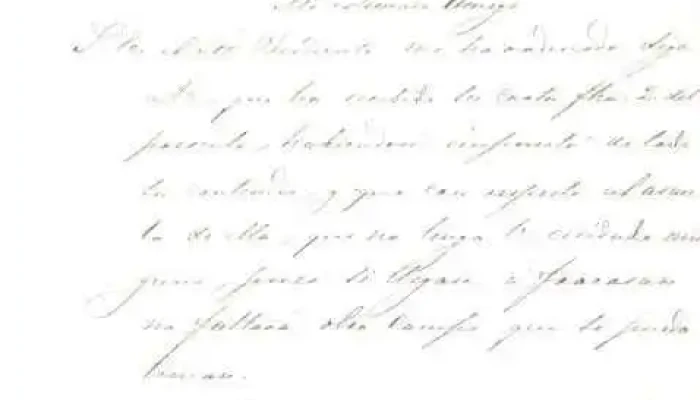 Mi estimado Amigo
El Sor. Presidente me ha ordenado diga
a V. que ha recibido su carta fha. 2 del
presente, habiendose impuesto de todo
su contenido, y que con respecto al asun
to de ella, que no tenga V. cuidado nin
guno, pues si llegan a fracasar
no faltará otro campo que se pueda
tomar.